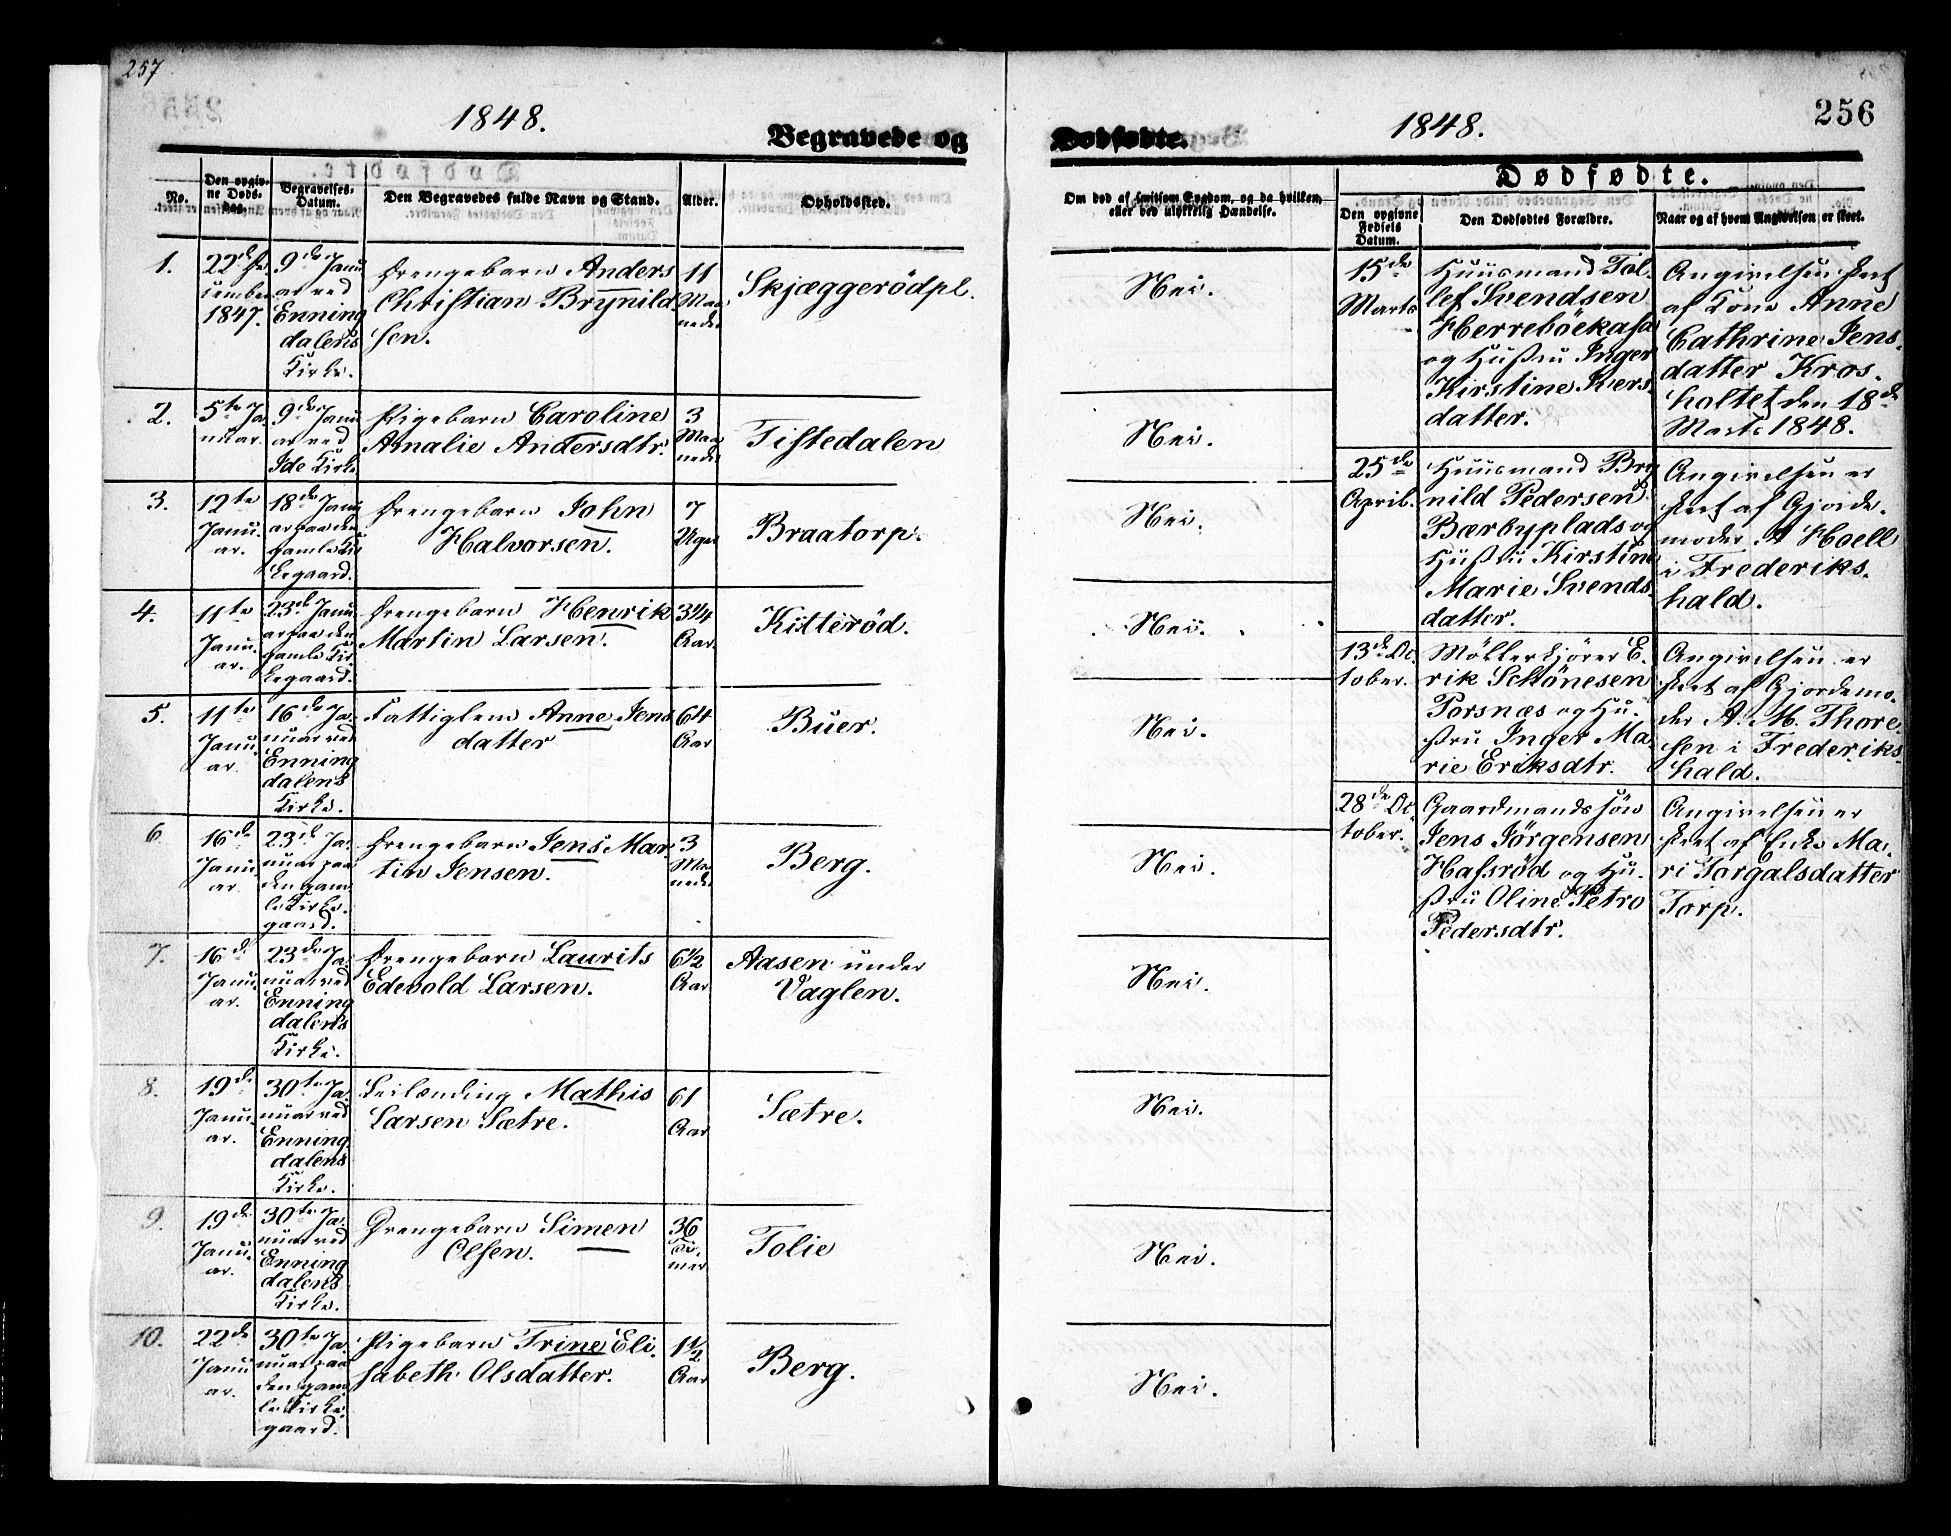 257
1848.
Begravede og
No.
Den opgiv-
ne Døds-
Begravelses-
Datum.
Den Begravedes fulde Navn og Stand.
Alder.
Opholdssted.
1.
22de De
cember
1847.
9de Janu
ar ved
Enning
dalens
Kirke.
Drengebarn Anders
Christian Brynild
sen.
11
Maa
neder
Skjæggerödpl.
2.
5te Ja
nuar.
9de Janu
ar ved
Ide Kirke
Pigebarn Caroline
Amalie Andersdtr.
3
Maa
neder
Tistedalen
3.
12te
Janu
ar.
18de Janu
ar paa den
gamle Kir
kegaard.
Drengebarn John
Halvorsen.
7
Uger
Braatorp.
4.
11te
Janu
ar.
23de Janu
ar paa den
gamle Kir
kegaard.
Drengebarn Henrik
Martin Larsen.
3 1/4
Aar.
Kitteröd.
5.
11te
Janu
ar.
16de Ja-
nuar ved
Enning
dalens
Kirke.
Fattiglem Anne Jens
datter
64
Aar
Buer.
6
16de
Janu
ar.
23de Ja-
nuar paa
den gam
le Kirke-
gaard.
Drengebarn Jens Mar-
tin Jensen.
3
Maa
neder
Berg.
7.
16de
Janu
ar.
23de Ja-
nuar ved
Enning
dalens
Kirke.
Drengebarn Laurits
Edevold Larsen.
6 1/2
Aar
Aasen under
Vaglen.
8.
19de
Janu
ar.
30te Ja-
nuar ved
Enning
dalens
Kirke.
Leilænding Mathis
Larsen Sætre.
61
Aar
Sætre.
9.
19de
Janu
ar.
30te Ja-
nuar ved
Enning
dalens
Kirke.
Drengebarn Simen
Olsen.
36
Ti-
mer
Tolie
10.
22de
Janu
ar.
30te Ja-
nuar paa
den gam
le Kirke
gaard.
Pigebarn Trine Eli-
sabeth Olsdatter.
1 1/2
Aar
Berg.
1848.
256
Dødfødte.
Om død af smitsom Sygdom, og da hvilken,
eller ved ulykkelig Hændelse.
Dødfødte.
Den opgivne
Fødsels
Datum.
Den Dødfødtes Forældre.
Naar og af hvem Angivelsen er skeet.
Nei.
Nei.
Nei.
Nei.
Nei.
Nei.
Nei.
Nei.
Nei.
Nei.
15de
Marts
Huusmand Tol-
lef Svendsen
Herreböekasa
og Hustru Inger
Kirstine Ivers
datter.
Angivelsen skeet
af Kone Anne
Cathrine Jens-
datter Kros-
holtet den 18de
Marts 1848.
25de
April.
Huusmand Bry
nild Pedersen
Bærbyplads og
Hustru Kirstine
Marie Svends-
datter.
Angivelsen er
skeet af Gjorde-
moder A Hoell
i Frederiks-
hald.
13de Oc
tober.
Möllerkjörer E-
rik Schönesen
Porsnæs og Hu-
stru Inger Ma-
rie Eriksdtr.
Angivelsen er
skeet af Gjordemo-
der A. M. Thore-
sen i Frederiks
hald.
28de Oc
tober.
Gaardmandssön
Jens Jörgensen
Hafsröd og Hu-
stru Oline Petro
Pedersdtr.
Angivelsen er
skeet af Enke Ma-
ri Torgalsdatter
Torp.